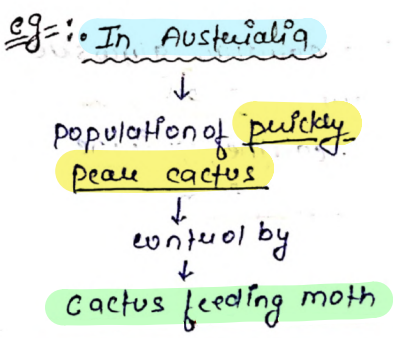 eg=:. In Austerialia
↓
population of prickly
pear cactus
↓
control by
↓
cactus feeding moth